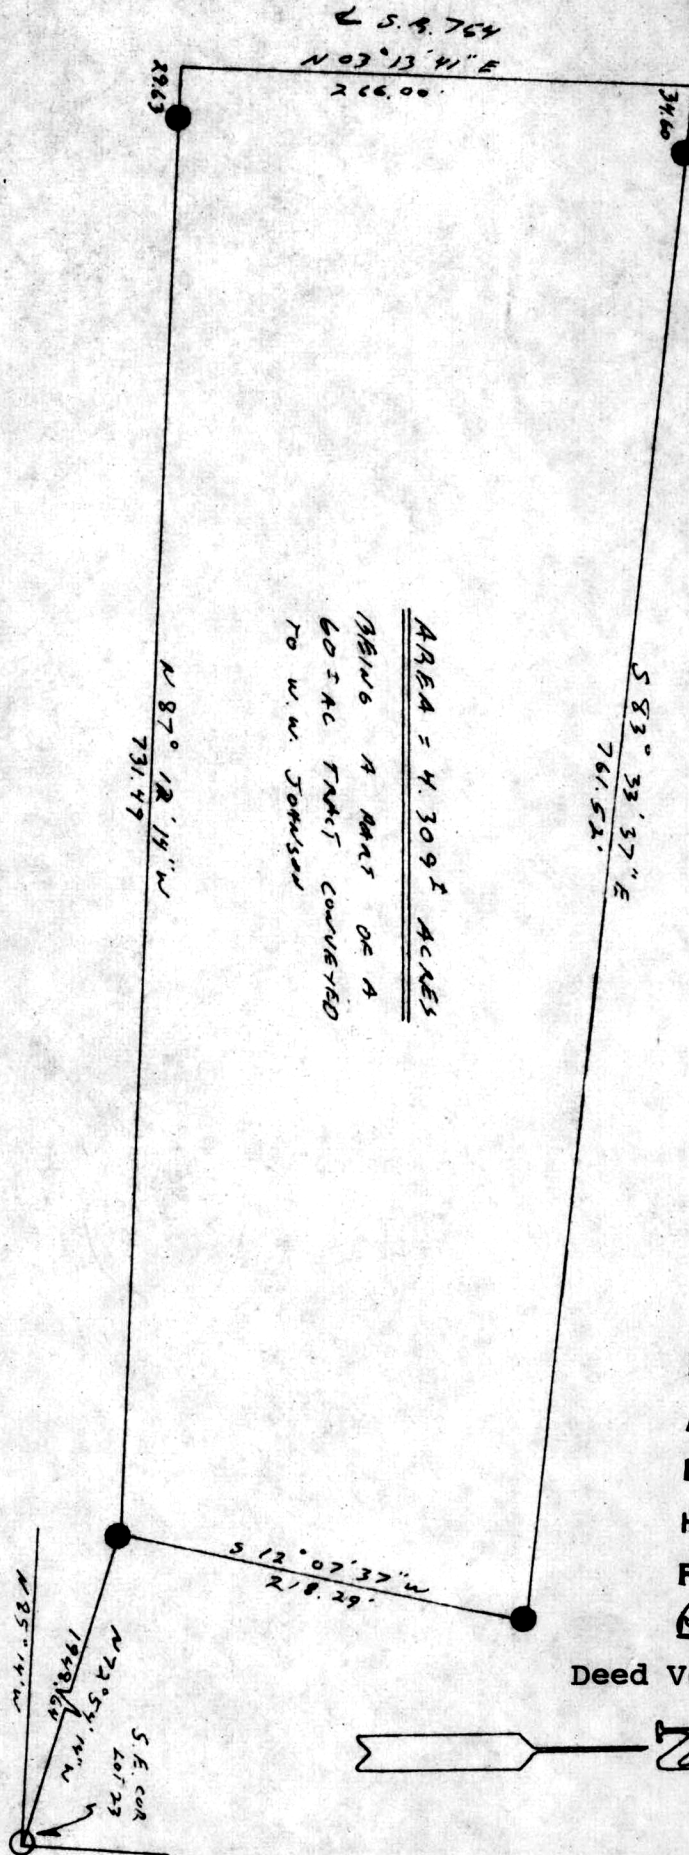 ℄ S.R. 754
N 03° 13' 41" E
266.00'
29.63
34.60
S 83° 33' 37" E
761.52'
AREA = 4.309± ACRES
BEING A PART OF A
60± AC TRACT CONVEYED
TO W.W. JOHNSON
N 87° 12' 14" W
731.49
S 12° 07' 37" W
218.29'
N 72° 54' 14" W
1948.64
N 85° 14' W
S.E. COR
LOT 23
Deed
N